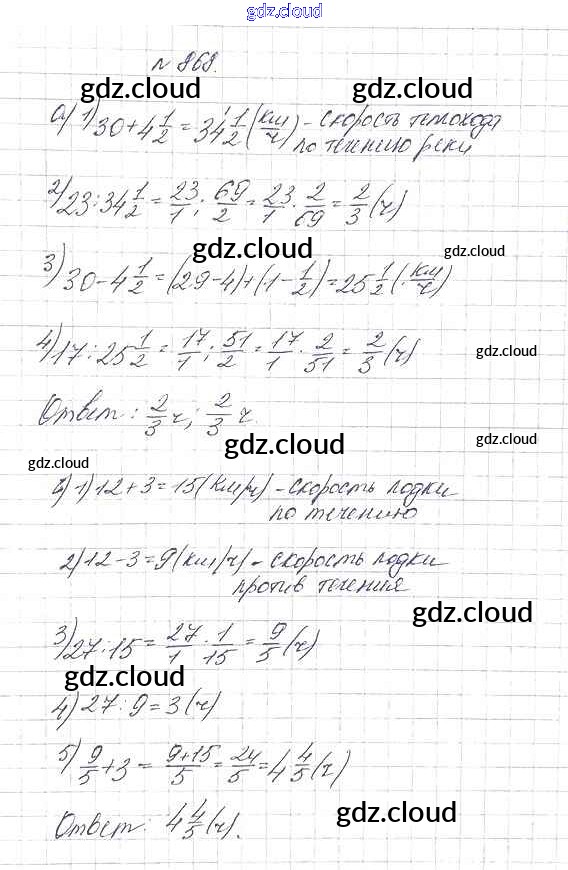 gdz.cloud
№ 868.
gdz.cloud gdz.cloud
а) 1) 30 + 4 1/2 = 34 1/2 (км/ч) - скорость теплохода
по течению реки
2) 23 : 34 1/2 = 23/1 : 69/2 = 23/1 · 2/69 = 2/3 (ч)
gdz.cloud gdz.cloud
3) 30 - 4 1/2 = (29 - 4) + (1 - 1/2) = 25 1/2 (км/ч)
4) 17 : 25 1/2 = 17/1 : 51/2 = 17/1 · 2/51 = 2/3 (ч)
gdz.cloud
Ответ: 2/3 ч; 2/3 ч.
gdz.cloud gdz.cloud
gdz.cloud
б) 1) 12 + 3 = 15 (км/ч) - скорость лодки
по течению
2) 12 - 3 = 9 (км/ч) - скорость лодки
против течения
gdz.cloud
3) 27 : 15 = 27/1 · 1/15 = 9/5 (ч)
gdz.cloud gdz.cloud
4) 27 : 9 = 3 (ч)
5) 9/5 + 3 = 9+15/5 = 24/5 = 4 4/5 (ч)
gdz.cloud
Ответ: 4 4/5 (ч).